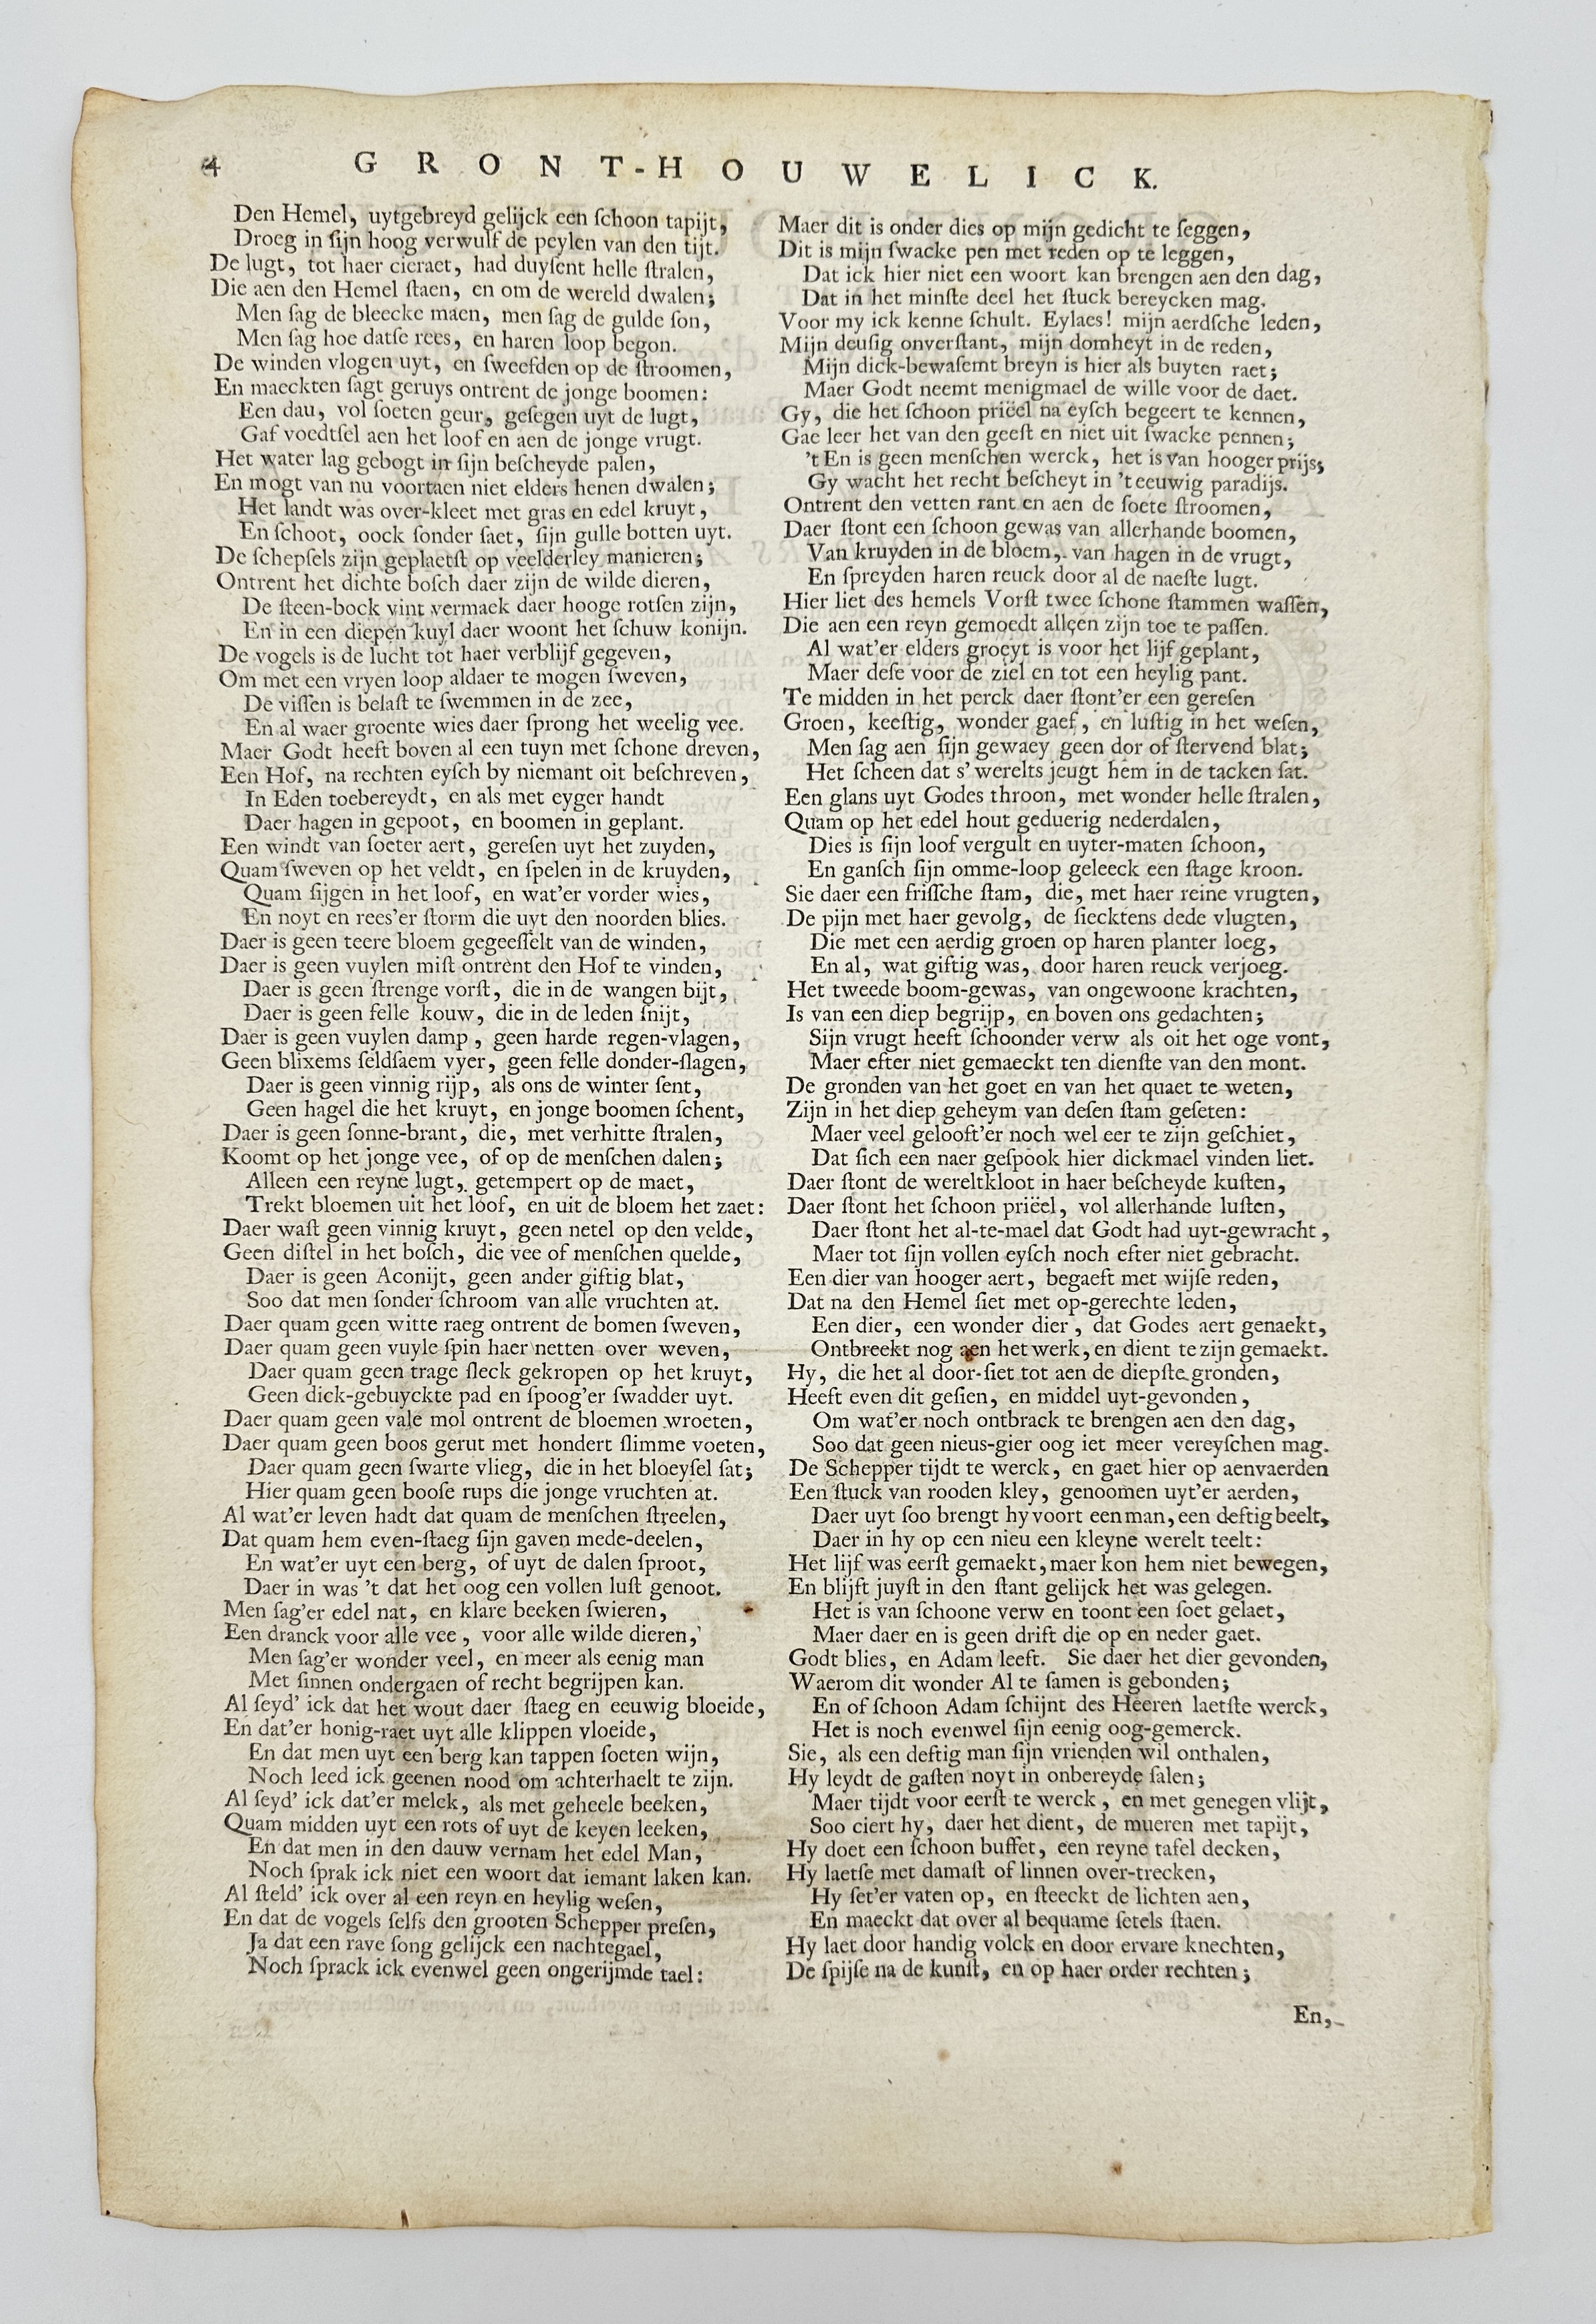 4 GRONT-HOUWELICK.
Den Hemel, uytgebreyd gelijck een ſchoon tapijt,
Droeg in ſijn hoog verwulf de peylen van den tijt.
De lugt, tot haer cieraet, had duyſent helle ſtralen,
Die aen den Hemel ſtaen, en om de wereld dwalen;
Men ſag de bleecke maen, men ſag de gulde ſon,
Men ſag hoe datſe rees, en haren loop begon.
De winden vlogen uyt, en ſweefden op de ſtroomen,
En maeckten ſagt geruys ontrent de jonge boomen:
Een dau, vol ſoeten geur, geſegen uyt de lugt,
Gaf voedtſel aen het loof en aen de jonge vrugt.
Het water lag gebogt in ſijn beſcheyde palen,
En mogt van nu voortaen niet elders henen dwalen;
Het landt was over-kleet met gras en edel kruyt,
En ſchoot, oock ſonder ſaet, ſijn gulle botten uyt.
De ſchepſels zijn geplaetſt op veelderley manieren;
Ontrent het dichte boſch daer zijn de wilde dieren,
De ſteen-bock vint vermaek daer hooge rotſen zijn,
En in een diepen kuyl daer woont het ſchuw konijn.
De vogels is de lucht tot haer verblijf gegeven,
Om met een vryen loop aldaer te mogen ſweven,
De viſſen is belaſt te ſwemmen in de zee,
En al waer groente wies daer ſprong het weelig vee.
Maer Godt heeft boven al een tuyn met ſchone dreven,
Een Hof, na rechten eyſch by niemant oit beſchreven,
In Eden toebereydt, en als met eyger handt
Daer hagen in gepoot, en boomen in geplant.
Een windt van ſoeter aert, gereſen uyt het zuyden,
Quam ſweven op het veldt, en ſpelen in de kruyden,
Quam ſijgen in het loof, en wat'er vorder wies,
En noyt en rees'er ſtorm die uyt den noorden blies.
Daer is geen teere bloem gegeeſſelt van de winden,
Daer is geen vuylen miſt ontrent den Hof te vinden,
Daer is geen ſtrenge vorſt, die in de wangen bijt,
Daer is geen felle kouw, die in de leden ſnijt,
Daer is geen vuylen damp, geen harde regen-vlagen,
Geen blixems ſeldſaem vyer, geen felle donder-ſlagen,
Daer is geen vinnig rijp, als ons de winter ſent,
Geen hagel die het kruyt, en jonge boomen ſchent,
Daer is geen ſonne-brant, die, met verhitte ſtralen,
Koomt op het jonge vee, of op de menſchen dalen;
Alleen een reyne lugt, getempert op de maet,
Trekt bloemen uit het loof, en uit de bloem het zaet:
Daer waſt geen vinnig kruyt, geen netel op den velde,
Geen diſtel in het boſch, die vee of menſchen quelde,
Daer is geen Aconijt, geen ander giftig blat,
Soo dat men ſonder ſchroom van alle vruchten at.
Daer quam geen witte raeg ontrent de bomen ſweven,
Daer quam geen vuyle ſpin haer netten over weven,
Daer quam geen trage ſleck gekropen op het kruyt,
Geen dick-gebuyckte pad en ſpoog'er ſwadder uyt.
Daer quam geen vale mol ontrent de bloemen wroeten,
Daer quam geen boos gerut met hondert ſlimme voeten,
Daer quam geen ſwarte vlieg, die in het bloeyſel ſat;
Hier quam geen booſe rups die jonge vruchten at.
Al wat'er leven hadt dat quam de menſchen ſtreelen,
Dat quam hem even-ſtaeg ſijn gaven mede-deelen,
En wat'er uyt een berg, of uyt de dalen ſproot,
Daer in was 't dat het oog een vollen luſt genoot.
Men ſag'er edel nat, en klare beeken ſwieren,
Een dranck voor alle vee, voor alle wilde dieren,
Men ſag'er wonder veel, en meer als eenig man
Met ſinnen ondergaen of recht begrijpen kan.
Al ſeyd' ick dat het wout daer ſtaeg en eeuwig bloeide,
En dat'er honig-raet uyt alle klippen vloeide,
En dat men uyt een berg kan tappen ſoeten wijn,
Noch leed ick geenen nood om achterhaelt te zijn.
Al ſeyd' ick dat'er melck, als met geheele beeken,
Quam midden uyt een rots of uyt de keyen leeken,
En dat men in den dauw vernam het edel Man,
Noch ſprak ick niet een woort dat iemant laken kan.
Al ſteld' ick over al een reyn en heylig weſen,
En dat de vogels ſelfs den grooten Schepper preſen,
Ja dat een rave ſong gelijck een nachtegael,
Noch ſprack ick evenwel geen ongerijmde tael:
Maer dit is onder dies op mijn gedicht te ſeggen,
Dit is mijn ſwacke pen met reden op te leggen,
Dat ick hier niet een woort kan brengen aen den dag,
Dat in het minſte deel het ſtuck bereycken mag.
Voor my ick kenne ſchult. Eylaes! mijn aerdſche leden,
Mijn deuſig onverſtant, mijn domheyt in de reden,
Mijn dick-bewaſemt breyn is hier als buyten raet;
Maer Godt neemt menigmael de wille voor de daet.
Gy, die het ſchoon priëel na eyſch begeert te kennen,
Gae leer het van den geeſt en niet uit ſwacke pennen;
't En is geen menſchen werck, het is van hooger prijs;
Gy wacht het recht beſcheyt in 't eeuwig paradijs.
Ontrent den vetten rant en aen de ſoete ſtroomen,
Daer ſtont een ſchoon gewas van allerhande boomen,
Van kruyden in de bloem, van hagen in de vrugt,
En ſpreyden haren reuck door al de naeſte lugt.
Hier liet des hemels Vorſt twee ſchone ſtammen waſſen,
Die aen een reyn gemoedt alleen zijn toe te paſſen.
Al wat'er elders groeyt is voor het lijf geplant,
Maer deſe voor de ziel en tot een heylig pant.
Te midden in het perck daer ſtont'er een gereſen
Groen, keeſtig, wonder gaef, en luſtig in het weſen,
Men ſag aen ſijn gewaey geen dor of ſtervend blat;
Het ſcheen dat s' werelts jeugt hem in de tacken ſat.
Een glans uyt Godes throon, met wonder helle ſtralen,
Quam op het edel hout geduerig nederdalen,
Dies is ſijn loof vergult en uyter-maten ſchoon,
En ganſch ſijn omme-loop geleeck een ſtage kroon.
Sie daer een friſſche ſtam, die, met haer reine vrugten,
De pijn met haer gevolg, de ſiecktens dede vlugten,
Die met een aerdig groen op haren planter loeg,
En al, wat giftig was, door haren reuck verjoeg.
Het tweede boom-gewas, van ongewoone krachten,
Is van een diep begrijp, en boven ons gedachten;
Sijn vrugt heeft ſchoonder verw als oit het oge vont,
Maer efter niet gemaeckt ten dienſte van den mont.
De gronden van het goet en van het quaet te weten,
Zijn in het diep geheym van deſen ſtam geſeten:
Maer veel gelooft'er noch wel eer te zijn geſchiet,
Dat ſich een naer geſpook hier dickmael vinden liet.
Daer ſtont de wereltkloot in haer beſcheyde kuſten,
Daer ſtont het ſchoon priëel, vol allerhande luſten,
Daer ſtont het al-te-mael dat Godt had uyt-gewracht,
Maer tot ſijn vollen eyſch noch efter niet gebracht.
Een dier van hooger aert, begaeft met wijſe reden,
Dat na den Hemel ſiet met op-gerechte leden,
Een dier, een wonder dier, dat Godes aert genaekt,
Ontbreekt nog aen het werk, en dient te zijn gemaekt.
Hy, die het al door-ſiet tot aen de diepſte gronden,
Heeft even dit geſien, en middel uyt-gevonden,
Om wat'er noch ontbrack te brengen aen den dag,
Soo dat geen nieus-gier oog iet meer vereyſchen mag.
De Schepper tijdt te werck, en gaet hier op aenvaerden
Een ſtuck van rooden kley, genoomen uyt'er aerden,
Daer uyt ſoo brengt hy voort een man, een deftig beelt,
Daer in hy op een nieu een kleyne werelt teelt:
Het lijf was eerſt gemaekt, maer kon hem niet bewegen,
En blijft juyſt in den ſtant gelijck het was gelegen.
Het is van ſchoone verw en toont een ſoet gelaet,
Maer daer en is geen drift die op en neder gaet.
Godt blies, en Adam leeft. Sie daer het dier gevonden,
Waerom dit wonder Al te ſamen is gebonden;
En of ſchoon Adam ſchijnt des Heeren laetſte werck,
Het is noch evenwel ſijn eenig oog-gemerck.
Sie, als een deftig man ſijn vrienden wil onthalen,
Hy leydt de gaſten noyt in onbereyde ſalen;
Maer tijdt voor eerſt te werck, en met genegen vlijt,
Soo ciert hy, daer het dient, de mueren met tapijt,
Hy doet een ſchoon buffet, een reyne tafel decken,
Hy laetſe met damaſt of linnen over-trecken,
Hy ſet'er vaten op, en ſteeckt de lichten aen,
En maeckt dat over al bequame ſetels ſtaen.
Hy laet door handig volck en door ervare knechten,
De ſpijſe na de kunſt, en op haer order rechten;
En,